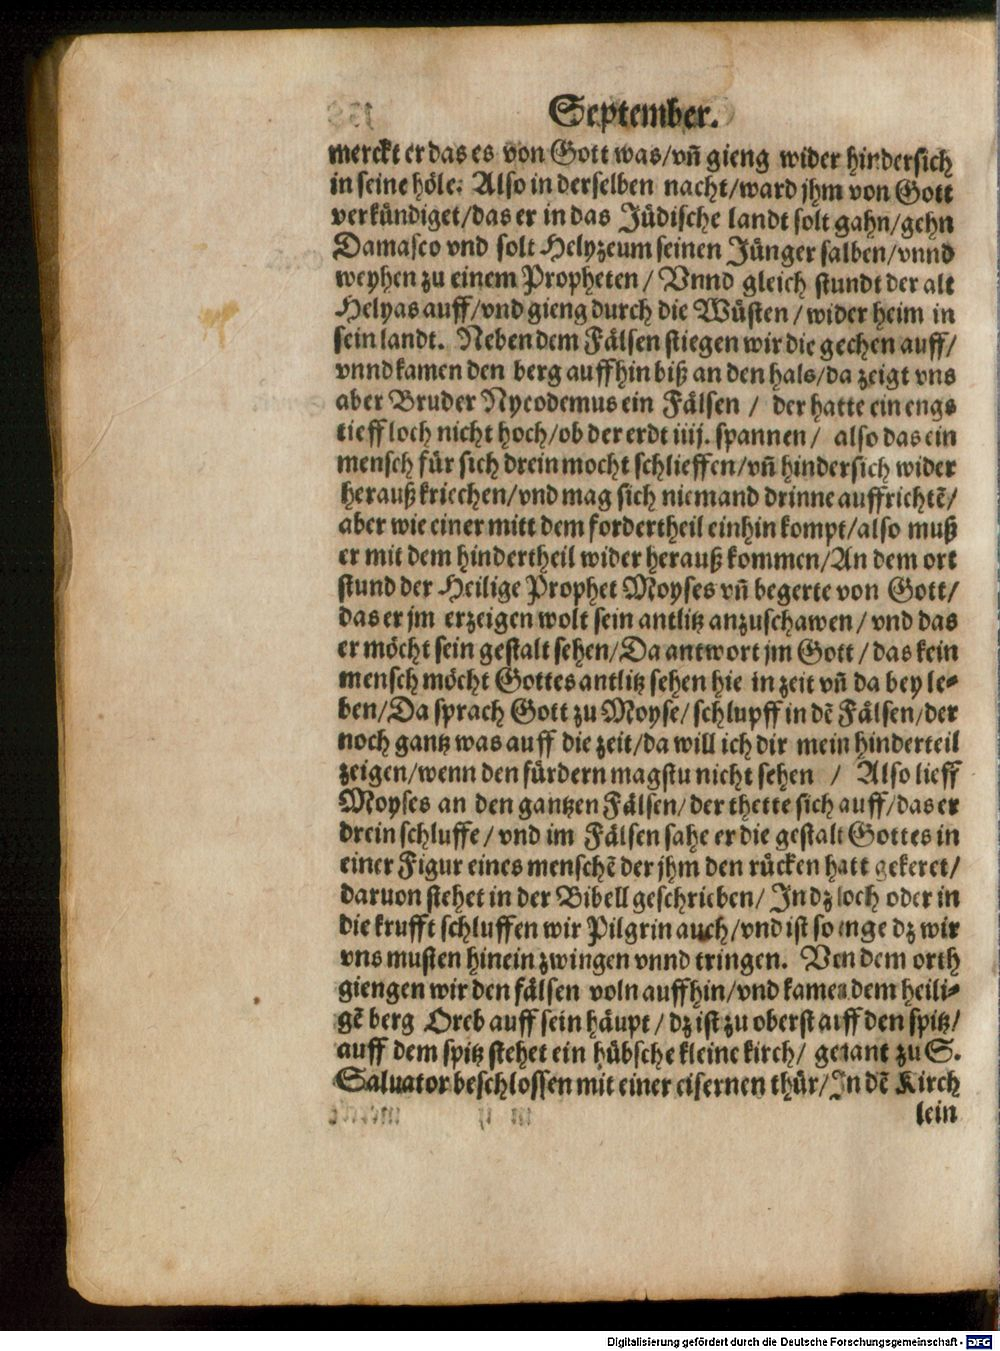 September.
merckt er das es von Gott was/vñ gieng wider hindersich
in seine höle: Also in derselben nacht/ward jhm von Gott
verkündiget/das er in das Jüdische landt solt gahn/gehn
Damasco vnd solt Helyzeum seinen Jünger salben/vnnd
weyhen zu einem Propheten/ Vnnd gleich stundt der alt
Helyas auff/vnd gieng durch die Wüsten/wider heim in
sein landt. Neben dem Fälsen stiegen wir die gechen auff/
vnnd kamen den berg auffhin biß an den hals/da zeigt vns
aber Bruder Nycodemus ein Fälsen / der hatte ein engs
tieff loch nicht hoch/ob der erdt iiij. spannen/ also das ein
mensch für sich drein mocht schlieffen/vñ hindersich wider
herauß kriechen/vnd mag sich niemand drinne auffrichtẽ/
aber wie einer mitt dem fordertheil einhin kompt/also muß
er mit dem hindertheil wider herauß kommen/An dem ort
stund der Heilige Prophet Moyses vñ begerte von Gott/
das er jm erzeigen wolt sein antlitz anzuschawen/vnd das
er möcht sein gestalt sehen/Da antwort jm Gott/das kein
mensch möcht Gottes antlitz sehen hie in zeit vñ da bey le-
ben/Da sprach Gott zu Moyse/schlupff in dẽ Fälsen/der
noch gantz was auff die zeit/da will ich dir mein hinderteil
zeigen/wenn den fürdern magstu nicht sehen / Also lieff
Moyses an den gantzen Fälsen/der thette sich auff/das er
drein schluffe/vnd im Fälsen sahe er die gestalt Gottes in
einer Figur eines menschẽ der jhm den rücken hatt gekeret/
daruon stehet in der Bibell geschrieben/ In dz loch oder in
die krufft schluffen wir Pilgrin auch/vnd ist so enge dz wir
vns musten hinein zwingen vnnd tringen. Von dem orth
giengen wir den fälsen voln auffhin/vnd kamen dem heili-
gẽ berg Oreb auff sein häupt/dz ist zu oberst auff den spitz/
auff dem spitz stehet ein hübsche kleine kirch/ genant zu S.
Saluator beschlossen mit einer eisernen thür/In dẽ Kirch
lein
Digitalisierung gefördert durch die Deutsche Forschungsgemeinschaft - DFG